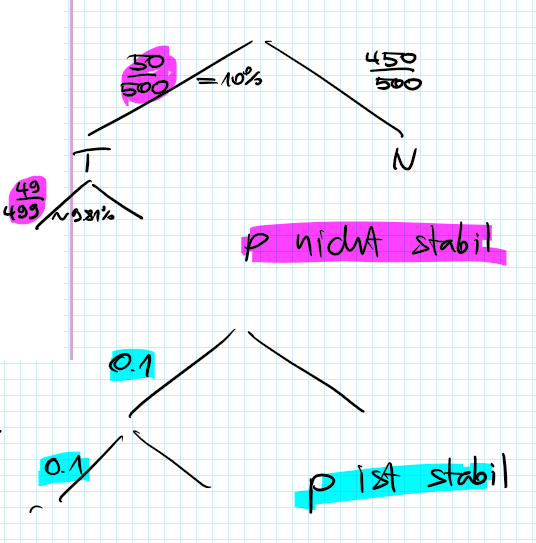 50/500 = 10%
450/500
T
N
49/499 ~9.81%
p nicht stabil
0.1
0.1
p ist stabil